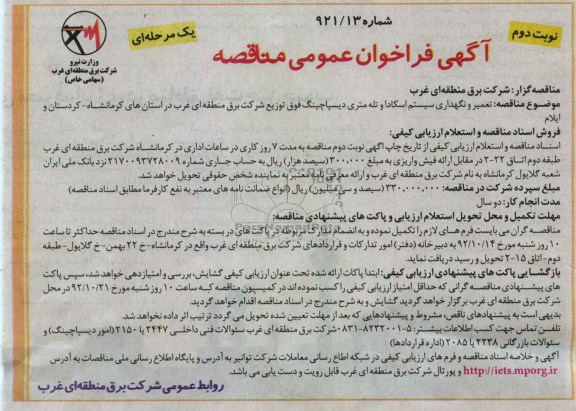 شماره ۹۲۱/۱۳
نوبت دوم
یک مرحله‌ای
آگهی فراخوان عمومی مناقصه
وزارت نیرو
شرکت برق منطقه‌ای غرب
(سهامی خاص)
مناقصه گزار: شرکت برق منطقه‌ای غرب
موضوع مناقصه: تعمیر و نگهداری سیستم اسکادا و تله متری دیسپاچینگ فوق توزیع شرکت برق منطقه‌ای غرب در استان های کرمانشاه- کردستان و
ایلام
فروش اسناد مناقصه و استعلام ارزیابی کیفی:
اسناد مناقصه و استعلام ارزیابی کیفی از تاریخ چاپ آگهی نوبت دوم مناقصه به مدت ۷ روز کاری در ساعات اداری در کرمانشاه شرکت برق منطقه‌ای غرب
طبقه دوم اتاق ۲۲-۲ در مقابل ارائه فیش واریزی به مبلغ ۳۰۰/۰۰۰ (سیصد هزار) ریال به حساب جاری شماره ۲۱۷۰۰۹۳۷۲۸۰۰۹ نزد بانک ملی ایران
شعبه گلایول کرمانشاه به نام شرکت برق منطقه‌ای غرب و ارائه معرفی نامه معتبر به نماینده شخص حقوقی تحویل خواهد شد.
مبلغ سپرده شرکت در مناقصه: ۳۳۰,۰۰۰,۰۰۰ (سیصد و سی میلیون) ریال (انواع ضمانت نامه های معتبر به نفع کارفرما مطابق اسناد مناقصه)
مدت انجام کار: دو سال
مهلت تکمیل و محل تحویل استعلام ارزیابی و پاکت های پیشنهادی مناقصه:
مناقصه گران می بایست فرم های لازم را تکمیل نموده و به انضمام مدارک مربوطه در پاکت های در بسته به شرح مندرج در اسناد مناقصه حداکثر تا ساعت
۱۰ روز شنبه مورخ ۹۲/۱۰/۱۴ به دبیرخانه (دفتر) امور تدارکات و قراردادهای شرکت برق منطقه‌ای غرب واقع در کرمانشاه- خ ۲۲ بهمن- خ گلایول- طبقه
دوم- اتاق ۱۵-۲ تحویل و رسید دریافت نماید.
بازگشایی پاکت های پیشنهادی ارزیابی کیفی: ابتدا پاکات ارائه شده تحت عنوان ارزیابی کیفی گشایش، بررسی و امتیازدهی خواهد شد، سپس پاکت
های پیشنهادی مناقصه گرانی که حداقل امتیاز ارزیابی کیفی را کسب نموده اند در کمیسیون مناقصه که ساعت ۱۰ روز شنبه مورخ ۹۲/۱۰/۲۱ در محل
شرکت برق منطقه‌ای غرب برگزار خواهد گردید گشایش و به شرح مندرج در اسناد مناقصه اقدام خواهد گردید.
بدیهی است به پیشنهادهای ناقص، مشروط و پیشنهادهایی که بعد از مهلت تعیین شده تحویل می گردد ترتیب اثر داده نخواهد شد.
تلفن تماس جهت کسب اطلاعات بیشتر: ۵-۸۲۳۲۰۰۱-۰۸۳۱ شرکت برق منطقه‌ای غرب سئوالات فنی داخلی ۲۴۴۷ یا ۲۱۵۰ (امور دیسپاچینگ) و
سئوالات بازرگانی ۲۲۳۸ یا ۲۰۸۵ (اداره قراردادها)
آگهی و خلاصه اسناد مناقصه و فرم های ارزیابی کیفی در شبکه اطلاع رسانی معاملات شرکت توانیر به آدرس و پایگاه اطلاع رسانی ملی مناقصات به آدرس
http://iets.mporg.ir و پورتال شرکت برق منطقه‌ای غرب قابل رویت و دست یابی می باشد.
روابط عمومی شرکت برق منطقه‌ای غرب